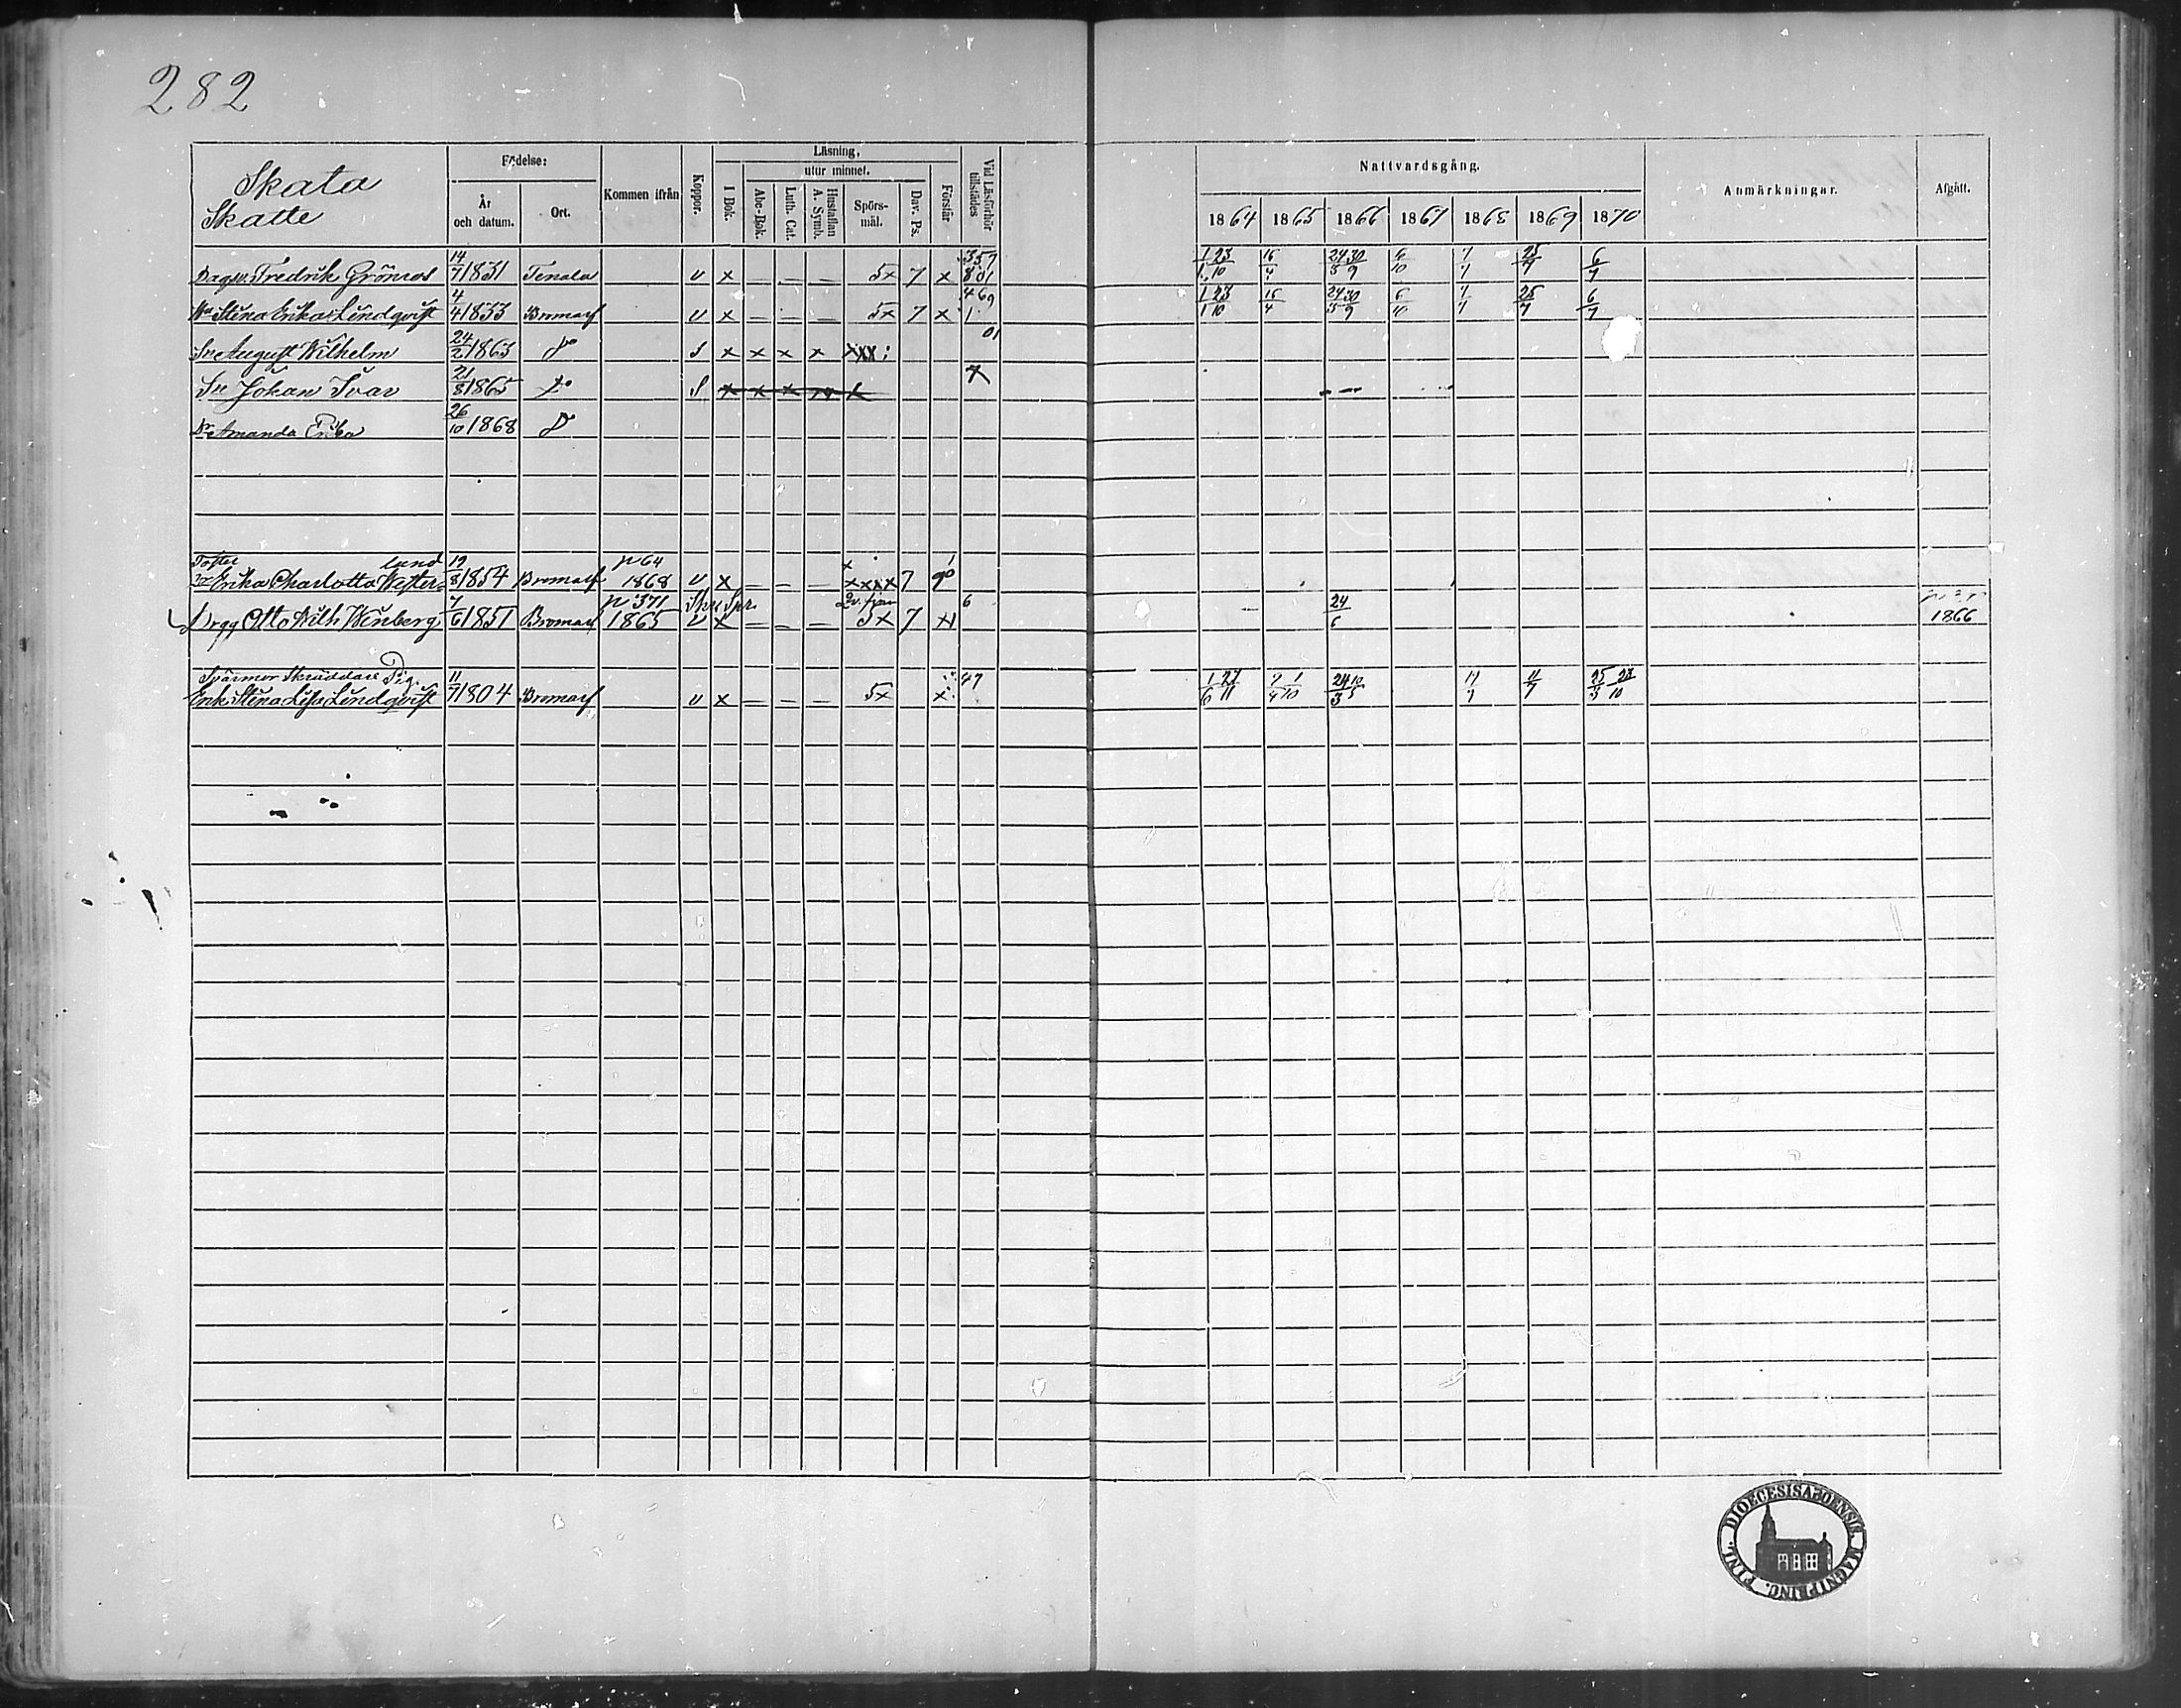 282
Skata
Skatte
Födelse:
År och datum.
Ort.
Kommen ifrån
Koppor.
Läsning,
I Bok.
utur minnet.
Abc-Bok.
Luth. Cat.
Hustaflan A. Symb.
Spörs-mål.
Dav. Ps.
Förstår
Vid Läsförhör tillstädes
Nattvardsgång.
1864 1865 1866 1867 1868 1869 1870
Anmärkningar.
Afgått.
Fredrik 14/7 1831 Tenala v x – – – 5x 7 x 357 801 1/1 23/10 16/4 24/3 30/9 6/10 25/7 6/7
Stina Erika Lindqvist 4/4 1833 Bromarf v x – – – 5x 7 x 469 1 1/1 23/10 16/4 24/3 30/9 6/10 25/7 6/7
Sn August Wilhelm 24/2 1863 do s x x x x xxx 01
Sn Johan Ivar 21/8 1865 do s x x x x x 7
Dr Amanda Erika 26/10 1868 do
Foster land p 64
Erika Charlotta Wester 19/8 1854 Bromarf 1868 v x – – – xxxx 7
p 371 6
Drgg Otto Wilh Winberg 7/6 1851 Bromarf 1865 v x – – – 5x 7 24/6 1866
Svärmor Skräddare
Enk. Stina Lisa Lindqvist 11/7 1804 Bromarf v x – – – 5x x 47 1/6 27/11 24/3 10/5 11/7 25/3 23/10
DIOECESIS ABOENSIS. MAGNI PRINC. FINL.